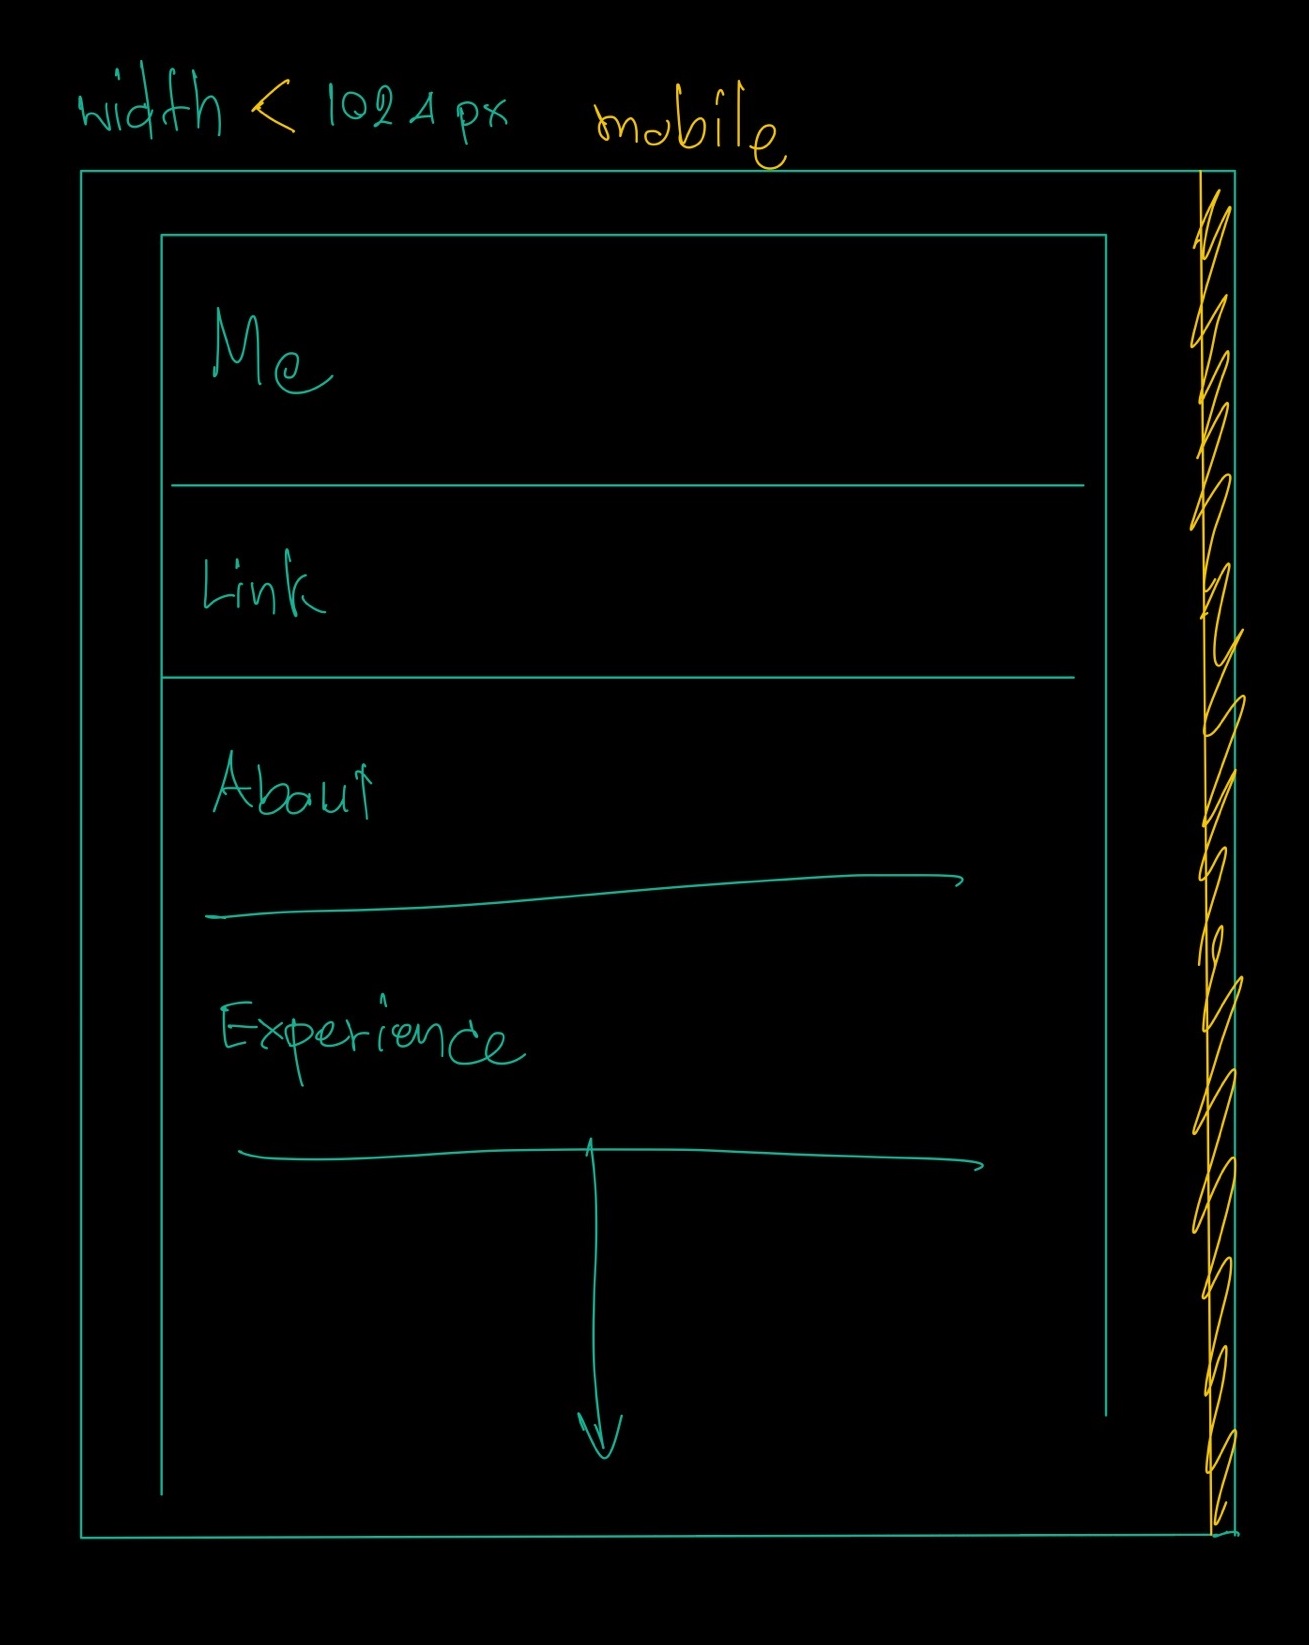 width < 1024px mobile
Me
Link
About
Experience